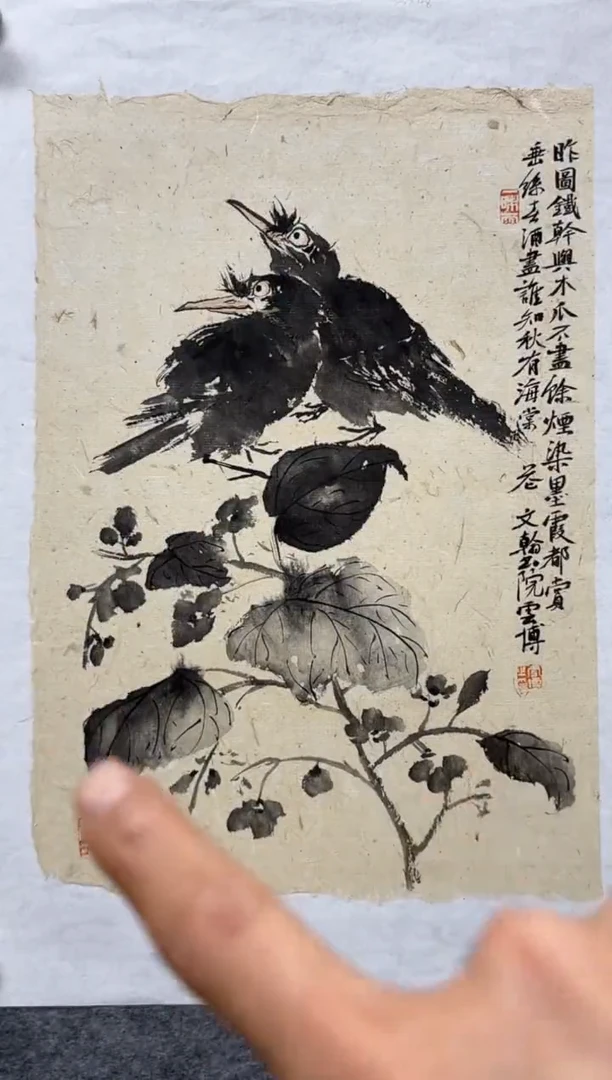 昨圖鐵幹與木瓜不盡餘煙染墨霞都賞
垂絲去酒盡誰知秋有海棠花 文翰書院雲博